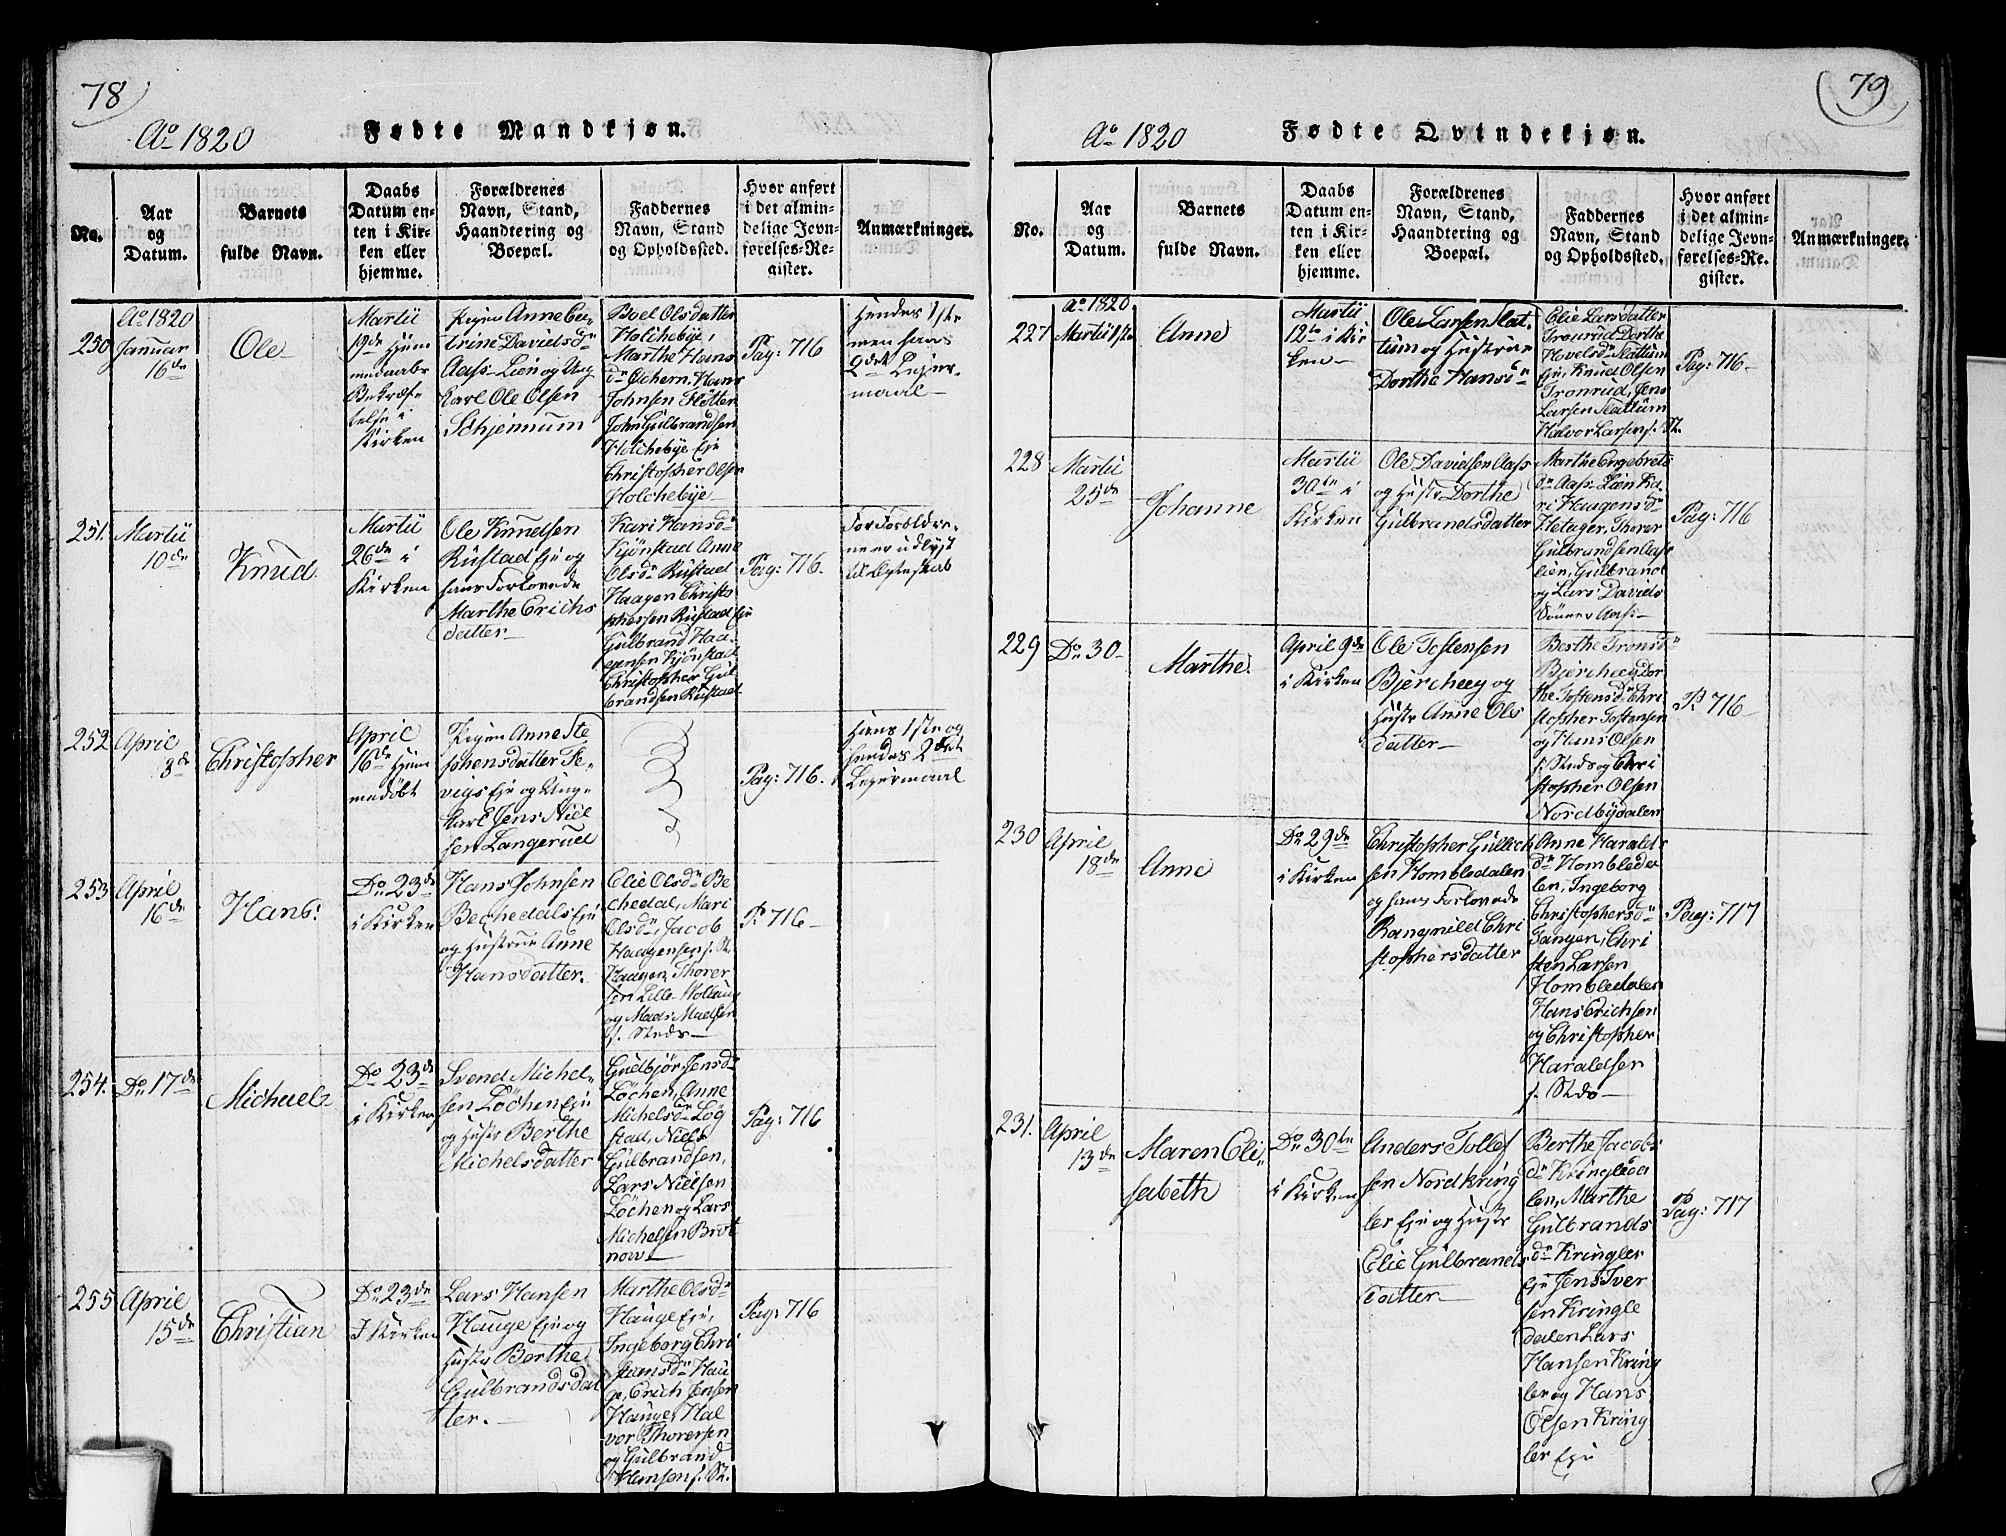 78
Ao 1820
Fødte Mandkjøn.
No.
Aar
og
Datum.
Barnets
fulde Navn.
Daabs
Datum en-
ten i Kir-
ken eller
hjemme.
Forældrenes
Navn, Stand,
Haandtering og
Boepæl.
Faddernes
Navn, Stand
og Opholdssted.
Hvor anført
i det almin-
delige Jevn-
førelses-Re-
gister.
Anmærkninger.
250
Ao 1820
Januar
16de
Ole
Martii
19de Hjem
medaabs
Bekræf
telse i
Kirken
Pigen Anne Ca-
trine Davidsdr
Aass-Lien og Ung
karl Ole Olsen
Schjennum
Boel Olsdatter
Holchebye,
Marthe Hans
dr Ochern, Hans
Johnsen Slotten
John Gulbrandsen
Holchebye Eje
Christopher Olsen
Holchebye
Pag: 716
Hendes 1ste
men hans
2det Lejer-
maal
251.
Martii
10de
Knud.
Martii
26de i
Kirken
Ole Knudsen
Rustad Eje og
hans Forlovede
Marthe Erichs
datter
Kari Hansdr
Kjönstad Anne
Olsdr Rustad
Haagen Christo
phersen Rustad Eje
Gulbrand Haa-
gensen Kjönstad
Christopher Gul
brandsen Rustad
Pag: 716.
For Forældre-
ne er udlyst
til Egteskab
252
April
3de
Christopher
April
16de Hjem
medöbt
Pigen Anne Ste
phensdatter Se-
vigs Eje og Ung-
karl Jens Niel
sen Langerud
Pag: 716.
Hans 1ste og
hendes 2det
Lejermaal
253
April
16de
Hans.
Do 23de
i Kirken
Hans Johnsen
Bechedals Eje
og Hustrue Anne
Hansdatter.
Elie Olsdr Be
chedal, Mari
Olsdr, Jacob
Haagensen s. St.
Haagen Thorer
sen Lille-Wollaug
og Mads Madsen
s. Steds
P: 716
254.
Do 17de
Michael
Do 23de
i Kirken
Svend Michel-
sen Löchen Eje
og Hustr Berthe
Michelsdatter
Gudbjör Jensdr
Löchen, Anne
Michelsdr Log
stad, Niels
Gulbrandsen,
Lars Nielsen
Löchen og Lars
Michelsen Brot
now
Pag: 716
255
April
15de
Christian
Do 23de
I Kirken
Lars Hansen
Hauge Eje og
Hustr Berthe
Gulbrandsdat
ter.
Marthe Olsdr
Hauge Eje,
Ingeborg Chri
stiansdr Hau
ge, Erich Jensen
Hauge, Hal
vor Thorersen
og Gulbrand
Hansen s. St.
Pag: 716
79
Ao 1820
Fødte Qvindekjøn.
No.
Aar
og
Datum.
Barnets
fulde Navn.
Daabs
Datum en-
ten i Kir-
ken eller
hjemme.
Forældrenes
Navn, Stand,
Haandtering og
Boepæl.
Faddernes
Navn, Stand
og Opholdssted.
Hvor anført
i det almin-
delige Jevn-
førelses-Re-
gister.
Anmærkninger.
227
Ao 1820.
Martii 1ste
Anne
Martii
12te i Kir
ken
Ole Larsen Slat-
tum og Hustrue
Dorthe Hansdr
Elie Larsdatter
Tronrud Dorthe
Hovelsdr Slattum
Eje, Knud Olsen
Tronrud, Jens
Larsen Slattum
Halvor Larsen s. St.
Pag: 716
228
Martii
25de
Johanne
Martii
30te i
Kirken
Ole Davidsen Aass
og Hustr Dorthe
Gulbrandsdatter
Marthe Engebrets
dr Aass-Lien Ka
ri Haagensdr
Hetager, Thorer
Gulbrandsen Aass
lien, Gulbrand
og Lars Davids
Sönner Aass
Pag: 716
229
Do 30
Marthe.
April 9de
i Kirken
Ole Tostensen
Bjercheeg og
Hustr Anne Ols
datter
Berthe Tronsdr
Bjercheeg Dor
the Tostensdr Chri
stopher Tostensen
og Hans Olsen
s. Steds og Chri
stopher Olsen
Nordbydalen
P: 716
230
April
18de
Anne
Do 29de
i Kirken
Christopher Gullich
sen Hombledalen
og hans Forlovede
Rangnild Chri
stophersdatter
Anne Haralds
dr Hombleda
len, Ingeborg
Christophersdr
Tangen, Chri
sten Larsen
Hombledalen
Hans Erichsen
og Christopher
Haraldsen
s. Steds
Pag: 717
231.
April
13de
Maren Eli-
sabeth
Do 30te
i Kirken
Anders Tollef
sen Nordkring
ler Eje og Hustr
Elie Gulbrands
datter
Berthe Jacobs
dr Kringleda
len, Marthe
Gulbrands
dr Kringler
Eje Jens Iver
sen Kringle
dalen Lars
Hansen Kring
ler og Hans
Olsen Kring
ler Eje
Pag: 717